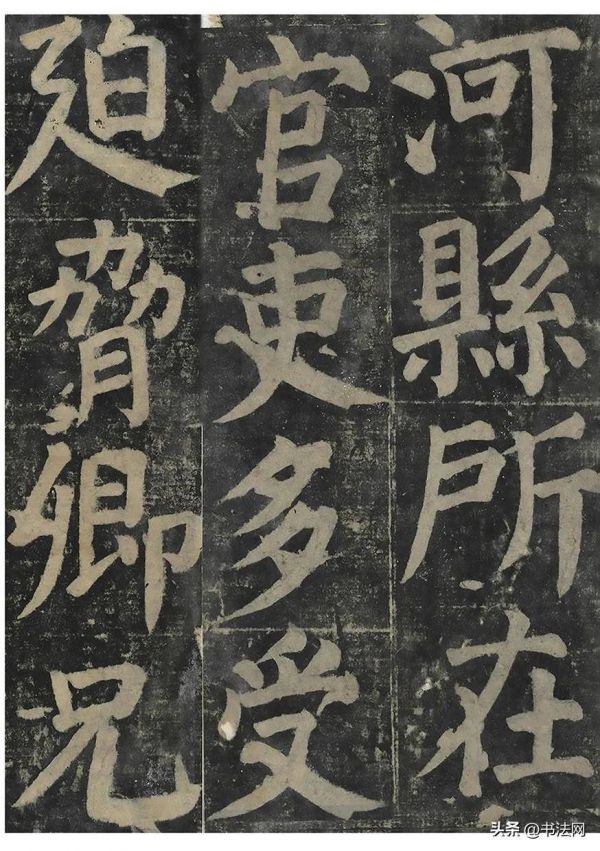 河縣所在
官吏多受
迫脅卿兄
头条 @书法网